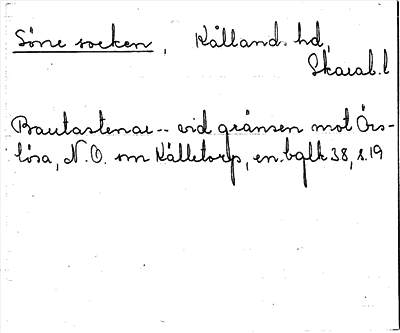 Söne socken, Kålland. hd,
Skarab. l
Bautastenar -- vid gränsen mot Örs-
lösa, N.O. om Källetorp, en. bglh 38, s. 19